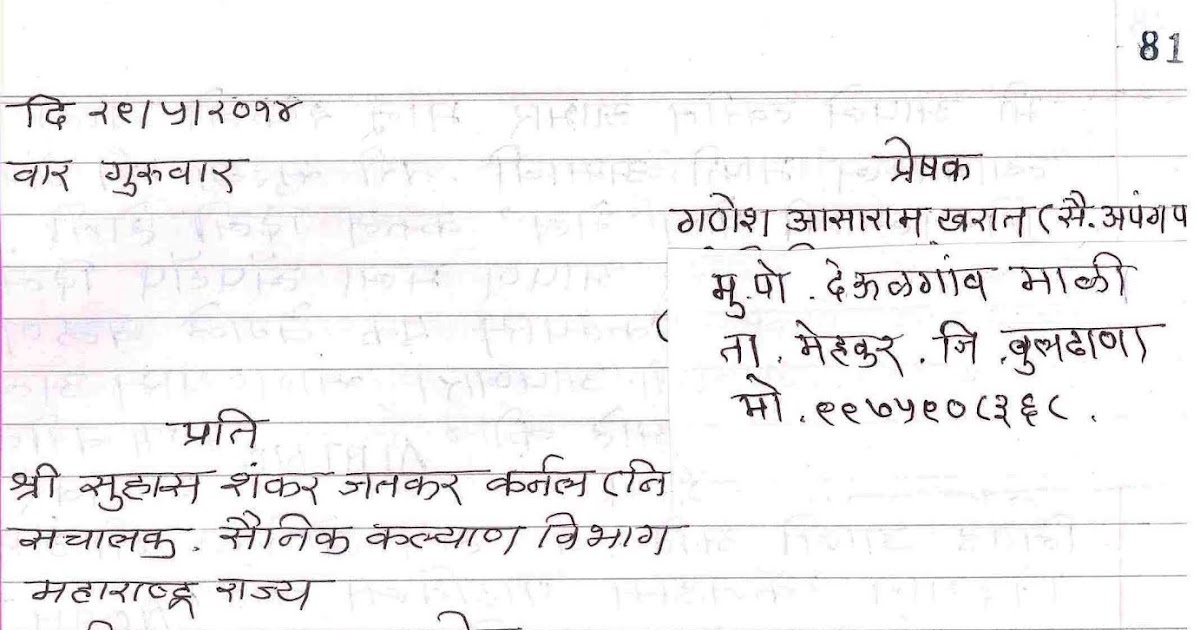 81
दि २९।५।२०१४
वार गुरुवार
प्रेषक
गणेश आसाराम खरात (सै. अपंग प
मु. पो. देऊळगांव माळी
ता. मेहकर. जि. बुलढाणा
मो. ९९७५९०८३६८.
प्रति
श्री सुहास शंकर जतकर कर्नल (नि
संचालक. सैनिक कल्याण विभाग
महाराष्ट्र राज्य